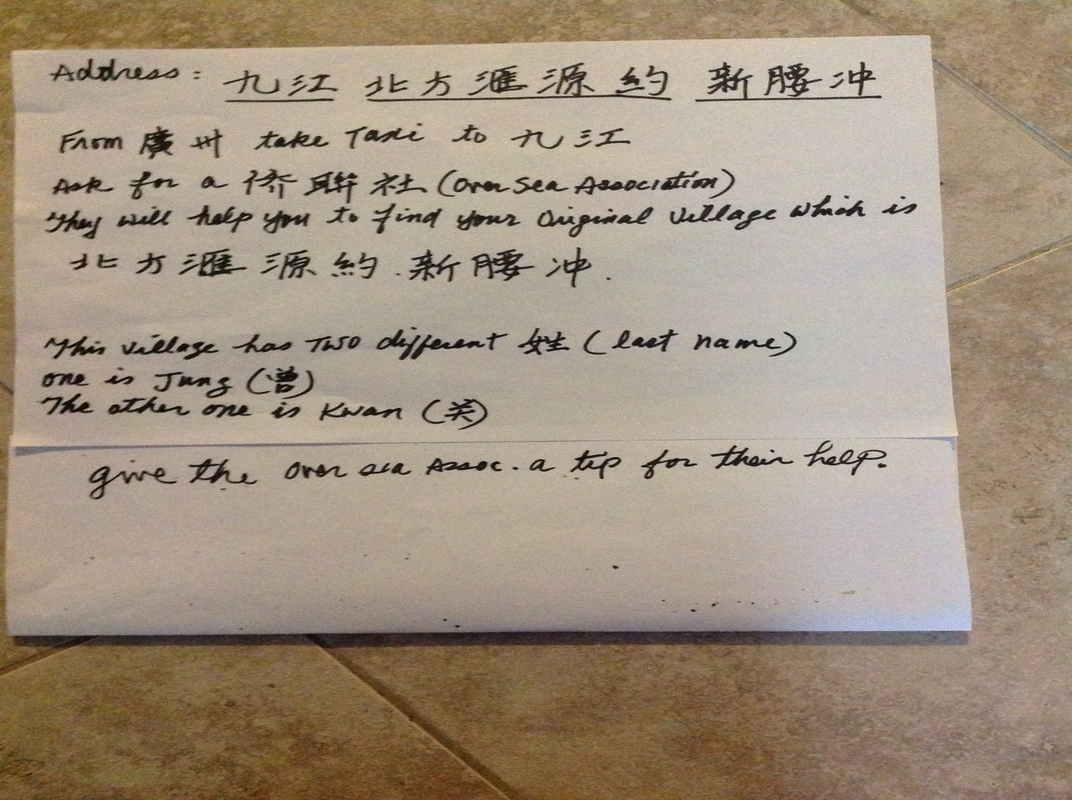 Address: 九江 北方滙源約 新腰冲
From 廣州 take Taxi to 九江
Ask for a 侨聯社 (Over Sea Association)
They will help you to find your Original Village which is
北方滙源約.新腰冲.
This village has Two different 姓 (last name)
one is Jung (曽)
The other one is Kwan (关)
give the over sea Assoc. a tip for their help.